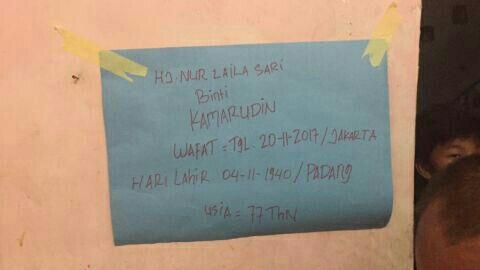 HJ. NUR LAILA SARI
Binti
KAMARUDIN
WAFAT = TGL. 20-11-2017 / JAKARTA
HARI LAHIR 04-11-1940 / PADANG
USIA = 77 THN